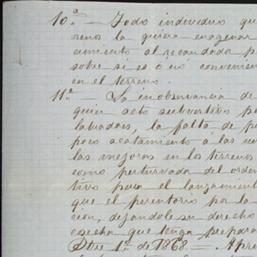 10.ª — Todo individuo que
renos la quiera enagenar
cimiento al recaudada p
sobre si es o nó convenien
en el terreno.
11.ª La inobservancia de
quier acto subvertivo p
labradas, la falta de p
poco acatamiento a las
las mejoras en los terrenos
como perturvador del orden
tivos para el lanzamient
que el perentorio pa la
cion, dejandole su derecho
cosecha que tenga prepara
Stre 1º de 1868 — Apro